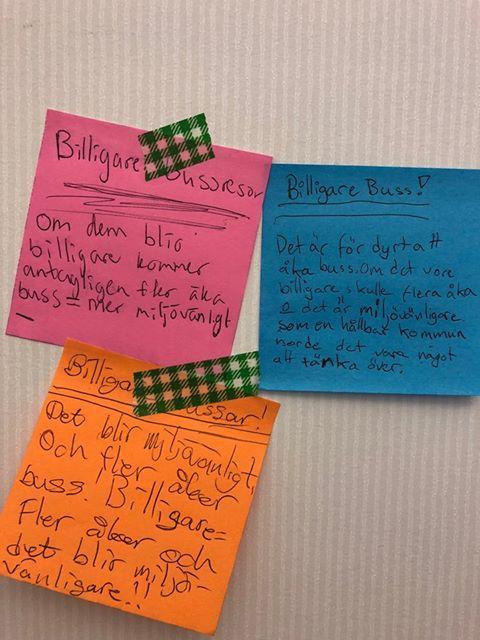 Billigare Bussresor
Om dem blir
billigare kommer
antagligen fler åka
buss = mer miljövänligt
Billigare Buss!
Det är för dyrt att
åka buss. Om det vore
billigare skulle flera åka
o det är miljövänligare
som en hållbar kommun
borde det vara något
att tänka över.
Billiga ussar!
Det blir miljövänligt,
Och fler åker
buss. Billigare=
Fler åker och
det blir miljö-
vänligare!!